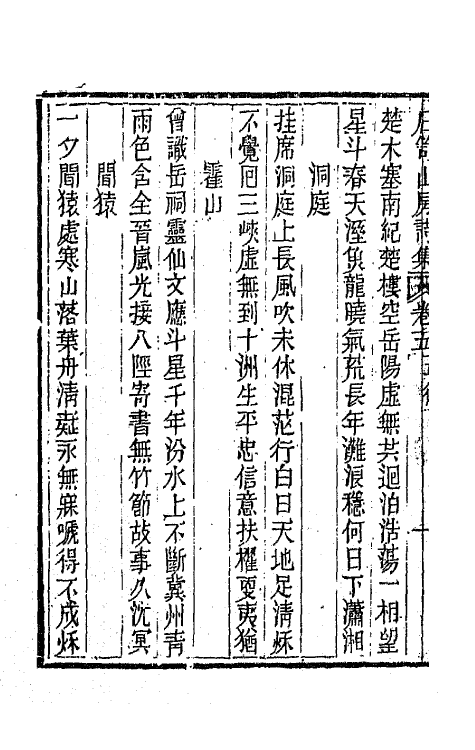 石笥山房詩集 卷五 五律 十
楚木塞南紀楚樓空岳陽虛無共迴泊浩蕩一相望
星斗春天溼魚龍曉氣荒長年灘浪穩何日下瀟湘
洞庭
挂席洞庭上長風吹未休混茫行白日天地足清秌
不覺囘三峽虛無到十洲生平忠信意扶櫂夷猶
霍山
曾識岳祠靈仙文應斗星千年汾水上不斷冀州青
雨色含全晉嵐光接八陘寄書無竹節故事久沈冥
聞猿
一夕聞猿處寒山落葉舟清永無寐唬得不成秌